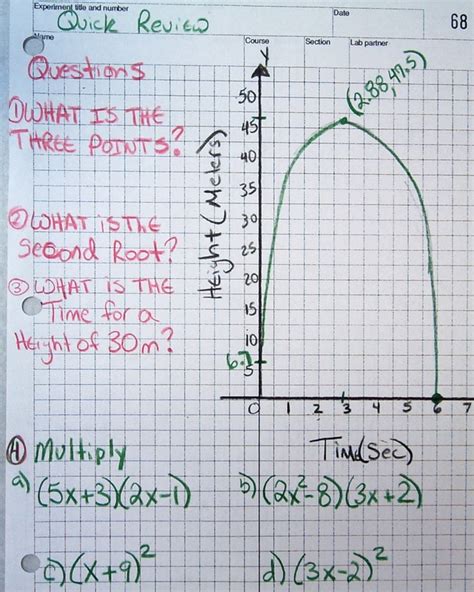 Experiment title and number
Quick Review
Date
68
Name
Course
Section
Lab partner
Questions
① WHAT IS THE
THREE POINTS?
② WHAT iS The
Second Root?
③ WHAT IS THE
Time for a
Height of 30m?
Height (Meters)
y
(2.88, 47.5)
50
45
40
35
30
25
20
15
10
6.7
5
0 1 2 3 4 5 6 7
Time (Sec)
④ Multiply
a) (5x+3)(2x-1)
b) (2x²-8)(3x+2)
c) (x+9)²
d) (3x-2)²